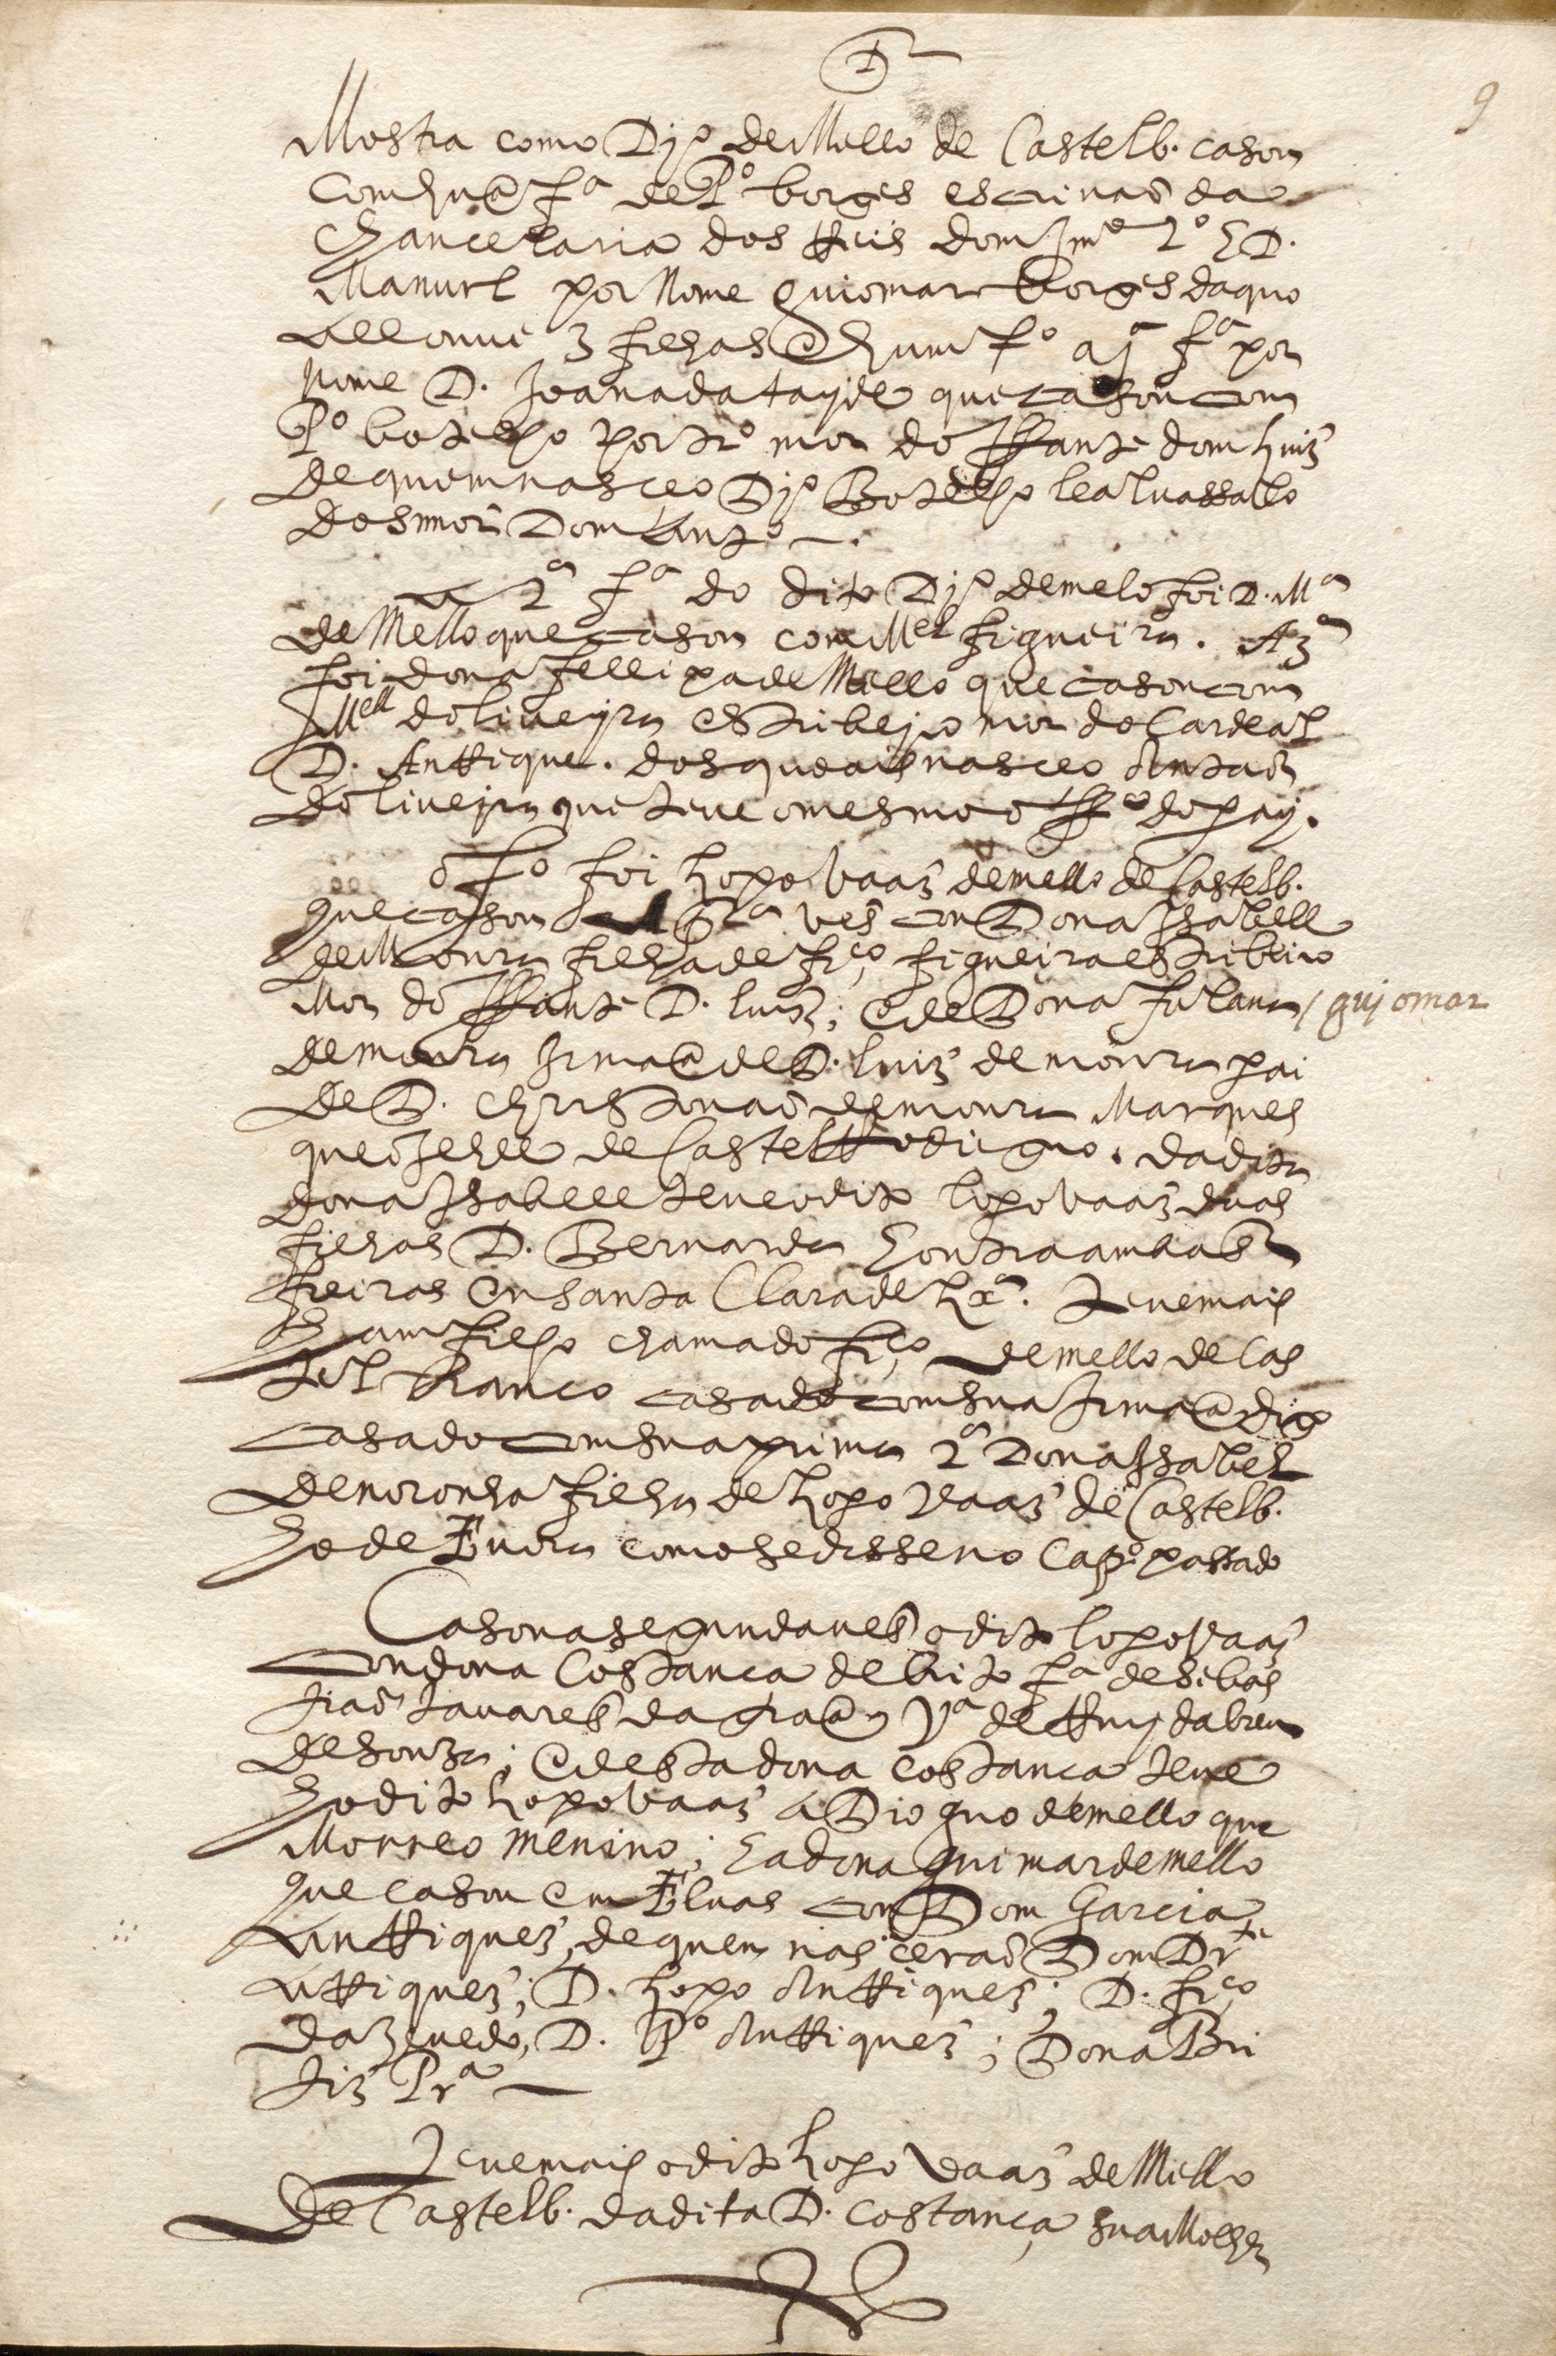 D
9
Mostra como Djº de Mello de Castelb. casou
com hu@ fª de Pº borges escrivaõ da
Chancelaria dos Reis dom Jmº 2º E D.
Manuel por Nome guiomar borges da quo
Alle ouve 3 filhas E hum fº aj fª por
nome D. Joana da tayde que casou com
Pº botelho port.rº mor do Iffante dom luis
de quem nasceo Djº Botelho leal vassallo
do Snnor Dom Antº
a 2ª fª do dito Djº de melo foi D. Mª
de Mello que casou com Mel figueira. A 3ª
foi dona fellipa de Mello que casou com
Mell doliveyra Estribejro mor do Cardeal
D. Anrrique. dos queais nasceo Antaõ
doliveyra que teve o mesmo offº do pay.
o fº foi lopo vaaz de mello de Castelb.
que casou a pr.ª ves con Dona Issabell
de Moura filha de frcº figueira estribeiro
Mor do Iffante D. luis; E de Dona fulana / gujomar
de moura Irma@ de D. luis de moura pai
de D. Christovaõ de moura Marques
que oje he de Castel Rodriguo. da dita
dona Issabell teve o dito lopo vaaz duas
filhas D. Bernarda E outra ambas
freiras en santa Clara de lxª. teve mais
Hum filho chamado frcº de mello de Cas
tel branco casado com sua Irma@ digo
casado com sua prima 2ª Dona Issabel
de noronha filha de lopo vaaz de Castelb.
Ho de Evora como se disse no Capº passado
Casou a segunda ves o dito lopo vaaz
con dona Costanca de brito fª de sebas
tiaõ tavares da gra@ vª de Ruy dabreu
de Souza; E desta dona costanca teve
Ho dito lopo vaaz a Dioguo de mello que
Morreo menino; E a dona guimar de mello
que casou em Elvas con Dom Garcia
Anrriquez, de quem nasceraõ Dom Drte
Anrriquez; D. lopo Anrriquez; D. frcº
dazevedo, D. Pº Anrriquez; Dona Bri
tiz Prª
Teve mais o dito lopo vaaz de Mello
de Castelb. da dita D. costança sua Molher